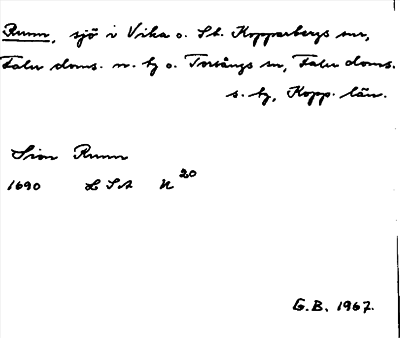 Runn, sjö i Vika o. St. Kopparbergs snr,
Falu doms. n. tg o. Torsångs sn, Falu doms.
s. tg, Kopp. län.
Sion Runn
1690 LSA N 20
G.B. 1967.